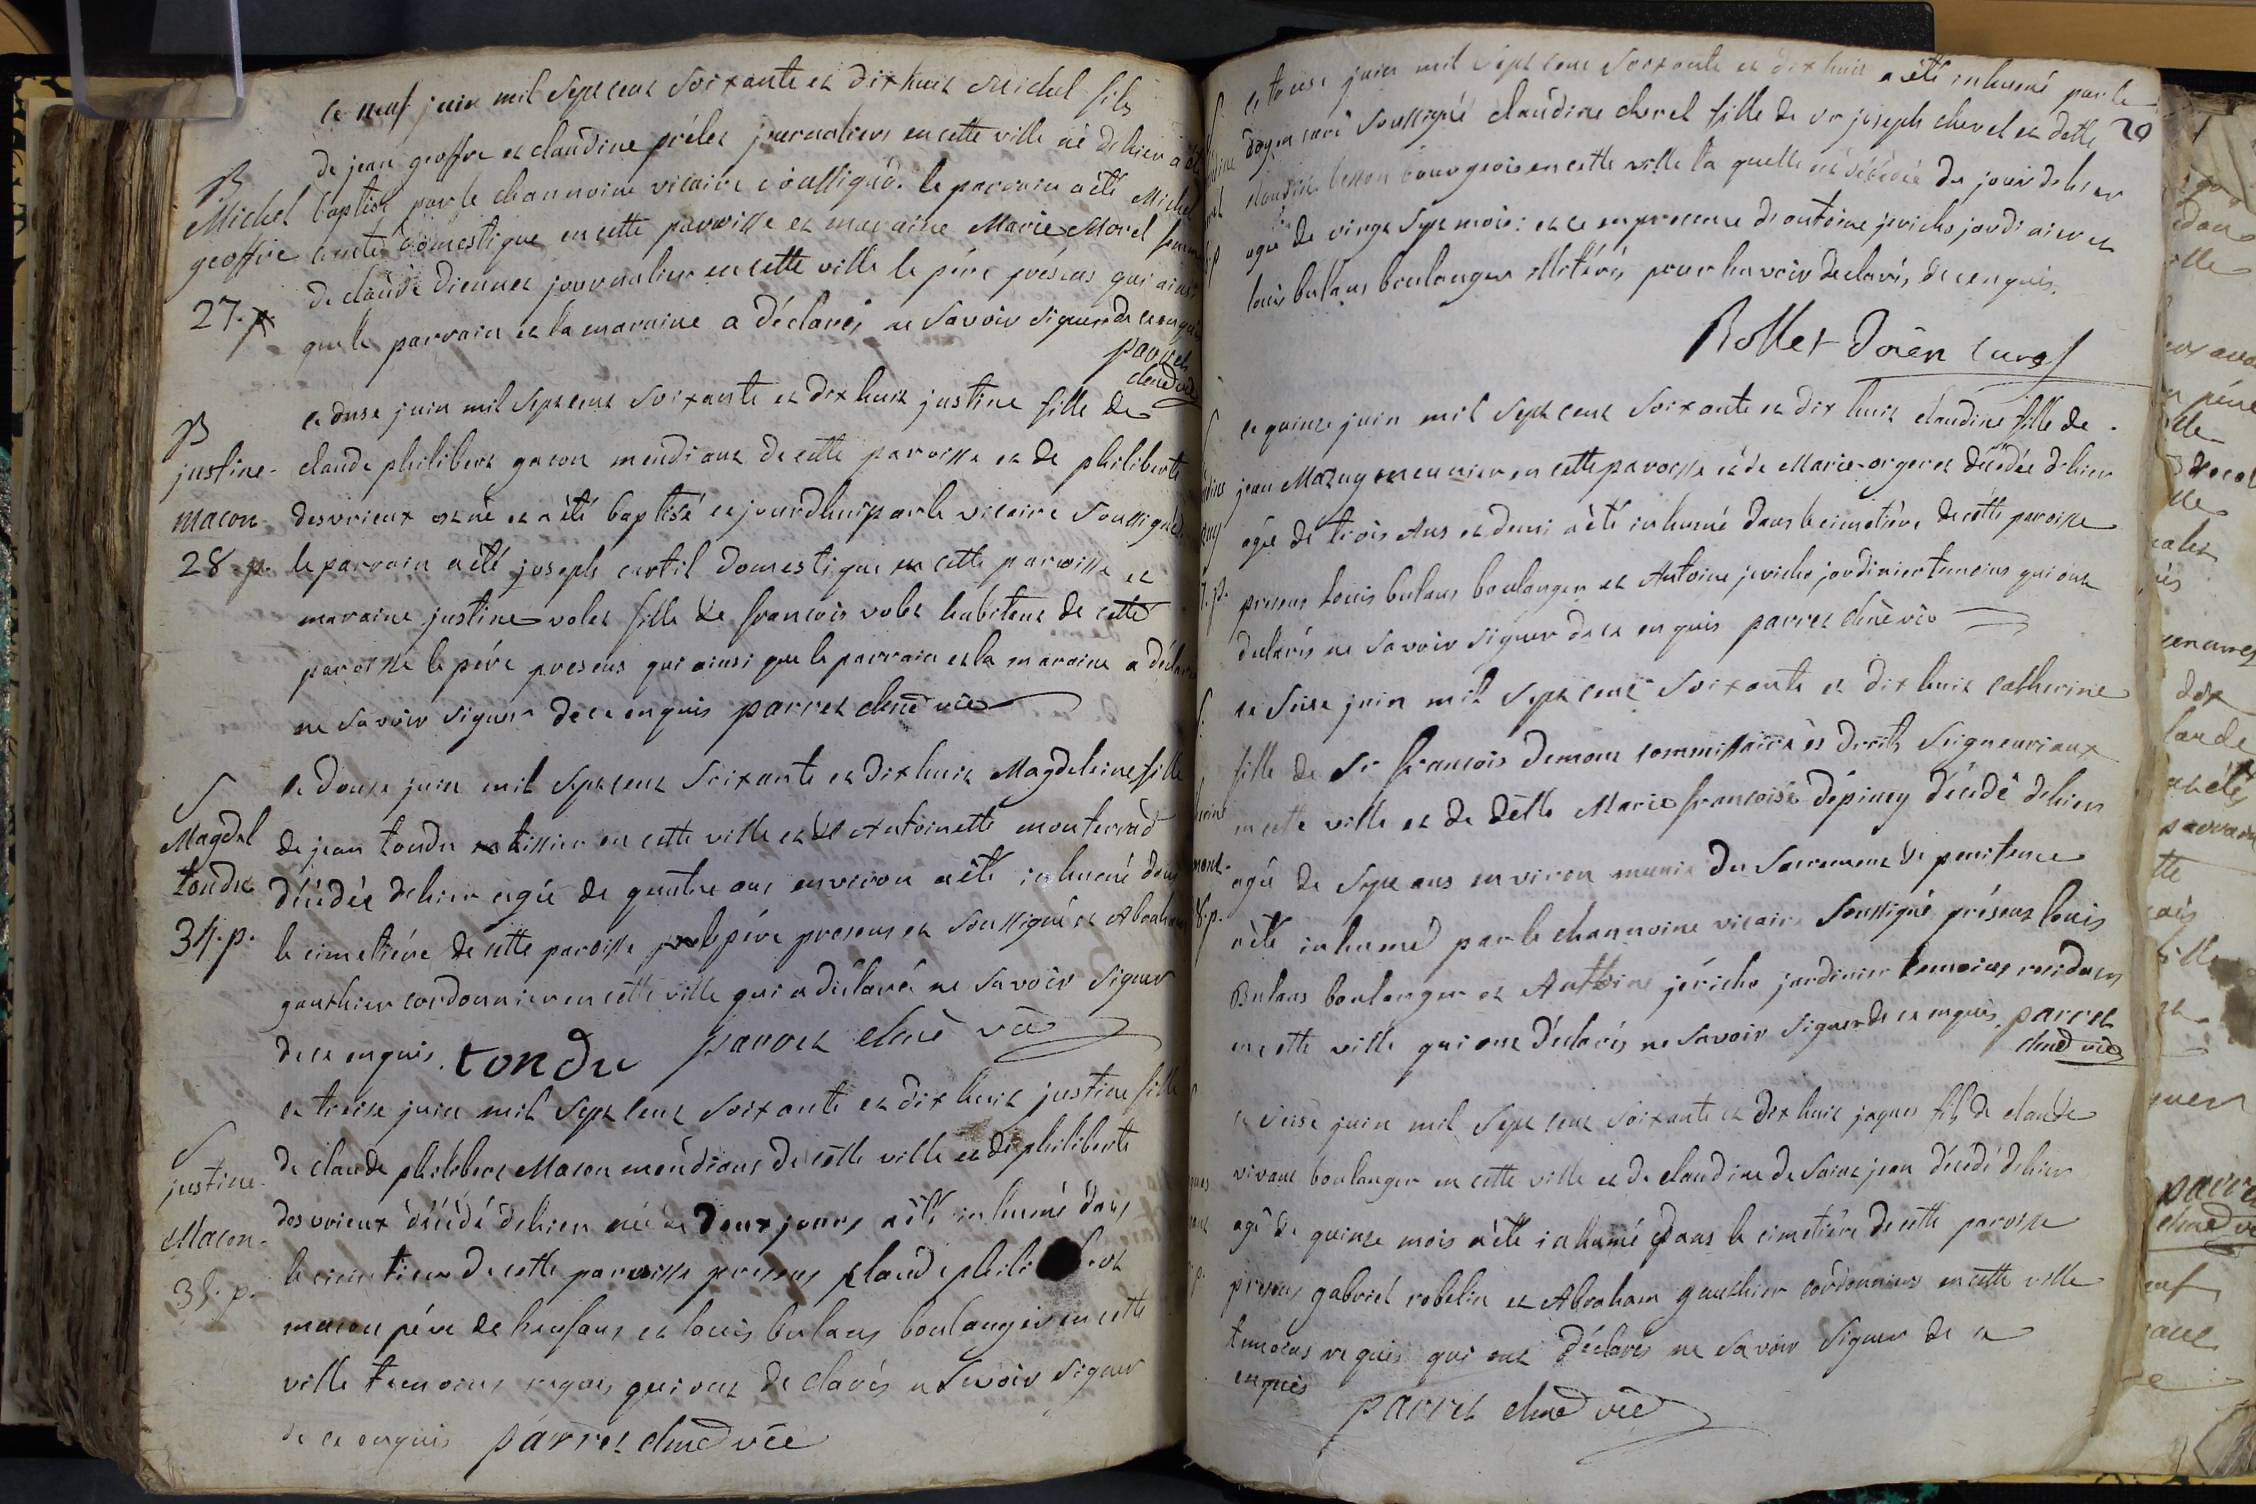 ce neuf juin mil sept cent soixante et dix huit Michel fils
de jean geoffre et claudine prélet journaliers en cette ville né dehier a été
B
Michel
geoffre
27. p
baptisé par le chanoinne vicaire soussigné. le parrain a été Michel
comte domestique en cette parroisse et maraine Marie Morel femme
de claude diennet journalier en cette ville le pére présens qui ainsi
que le parrain et la maraine a déclarés ne savoir signer de ce enquis
parret
chne vic
ce duse juin mil sept cent soixante et dix huit justine fille de
B
justine
macon
28 p.
claude philibert macon mendiant de cette paroisse et de philiberte
desvrieux est né et a été baptisé ce jourdhui par le vicaire soussigné
le parrain a été joseph curtil domestique en cette parroisse et
maraine justine volet fille de francois volet habitant de cette
paroisse le pére presens qui ainsi que le parrain et la maraine a déclaré
ne savoir signer de ce enquis parret chne vic
ce douse juin mil sept cent soixante et dix huit Magdeleine fille
S
Magdel
tondu
34. p.
de jean tondu tissier en cette ville et de Antoinette monterrad
décédée dehier agée de quatre ans environ a été inhumé dans
le cimetiére de cette paroisse le pére presens et soussigné et Abraham
gauthier cordonnier en cette ville qui a déclaré ne savoir signer
de ce enquis. tondu parret chne vic
ce treise juin mil sept cent soixante et dix huit justine fille
S
justine
Macon
35. p.
de claude philibert Macon mendians de cette ville et de philiberte
desvrieux décédé dehier née de deux jours a été inhumé dans
le cimetiere de cette parroisse presens claude phili bert
macon pére de lenfans et louis bulans boulanger en cette
ville temoins requis qui ont déclarés ne savoir signer
de ce enquis parret chne vic
20
ce treise juin mil sept cent soixante et dix huit a été inhumé par le
doyen curé soussigné claudine chevel fille de sr joseph chevel et delle
claudine besson bourgeois en cette ville la quelle est décédée du jour dehier
agée de vingt sept mois: et ce en presence de antoine jericho jardinier et
louis bulans boulanger illitérés pour lavoir declarés, de ce enquis.
Rollet doien curé
ce quinze juin mil sept cent soixante et dix huit claudine fille de
jean Mazuy meunier en cette paroisse et de Marie orgeret décédée dehier
agée de trois Ans et demi a été inhumé dans le cimetiére de cette paroisse
presens Louis bulans boulanger et Antoine jericho jardinier temoins qui ont
declarés ne savoir signer de ce enquis parret chne vic
ce seise juin mil sept cent soixante et dix huit catherine
fille de sr francois demont commissaire és droits seigneuriaux
en cette ville et de delle Marie francoise dépiney décédé dehier
agée de sept ans environ munie du sacrement de penitence
a été inhumé par le chanoinne vicaire soussigné présens louis
Bulans boulanger et Anthoine jéricho jardinier temoins residens
en cette ville qui ont déclarés ne savoir signer de ce enquis. parret
chne vic
ce seise juin mil sept cent soixante et dix huit jaques fils de claude
vivant boulanger en cette ville et de claudine de saint jean décédé dehier
agé de quinze mois a été inhumé dans le cimetiére de cette paroisse
presens gabriel robelin et Abraham gauthier cordonniers en cette ville
temoins requis qui ont déclarés ne savoir signer de ce
enquis parret chne vic